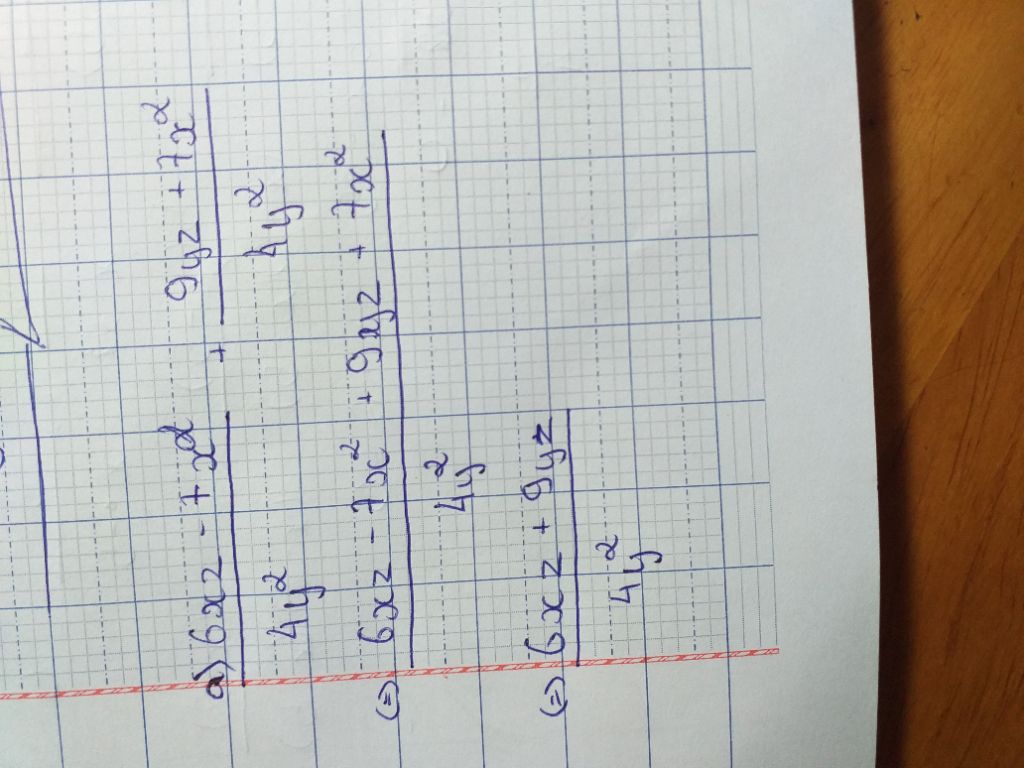 a) 6xz - 7x² + 9yz + 7x²
4y² 4y²
(=) 6xz - 7x² + 9yz + 7x²
4y²
(=) 6xz + 9yz
4y²